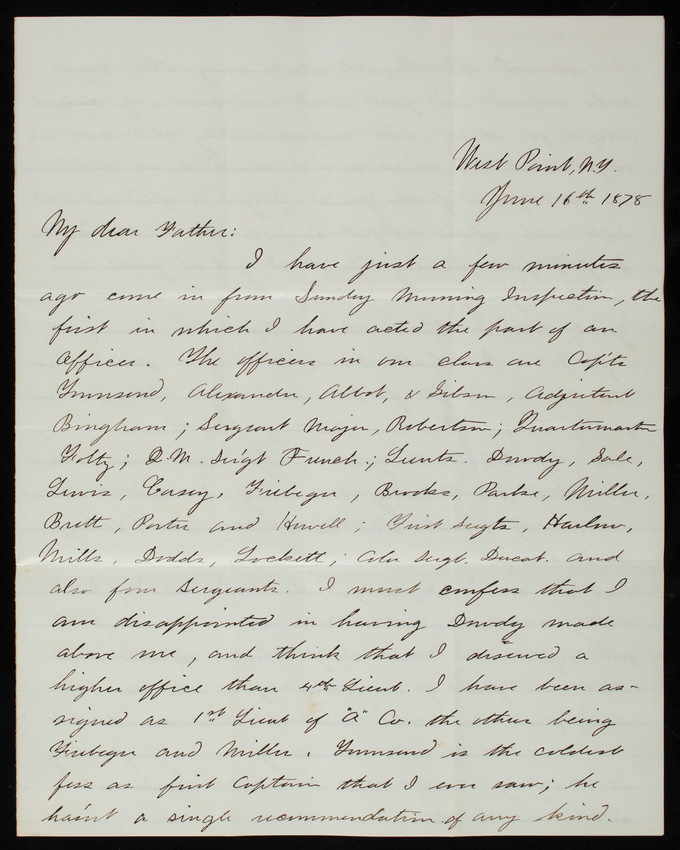 West Point, N.Y.
June 16th 1878
My dear Father:
I have just a few minutes
ago come in from Sunday Morning Inspection, the
first in which I have acted the part of an
officer. The officers in our class are Capts
Townsend, Alexander, Abbot, & Gibson, Adjutant
Bingham; Sergeant Major, Robertson; Quartermaster
Foltz; Q.M. Serg't French; Lieuts. Dowdy, Sale,
Lewis, Casey, Fiebeger, Brooks, Parke, Miller,
Brett, Porter and Howell; First Sergts, Harlow,
Mills, Dodds, Lockett; Color Sergt. Ducat. and
also four Sergeants. I must confess that I
am disappointed in having Dowdy made
above me, and think that I deserved a
higher office than 4th Lieut. I have been as-
signed as 1st Lieut of "A" Co. the others being
Fiebeger and Miller. Townsend is the coldest
fess as first Captain that I ever saw; he
hasn't a single recommendation of any kind.